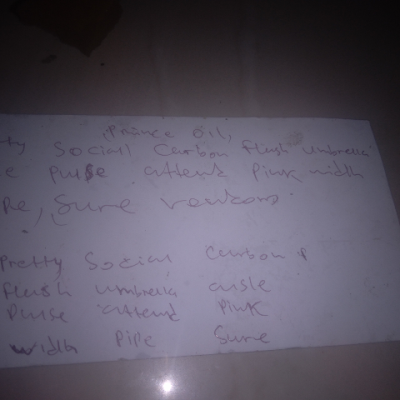 Prince oil,
ty Social Carbon flush umbrella
e pulse attend Pink width
Pe, Sure
Pretty Social Carbon
flush umbrella aisle
Pulse attend Pink
width Pipe Sure